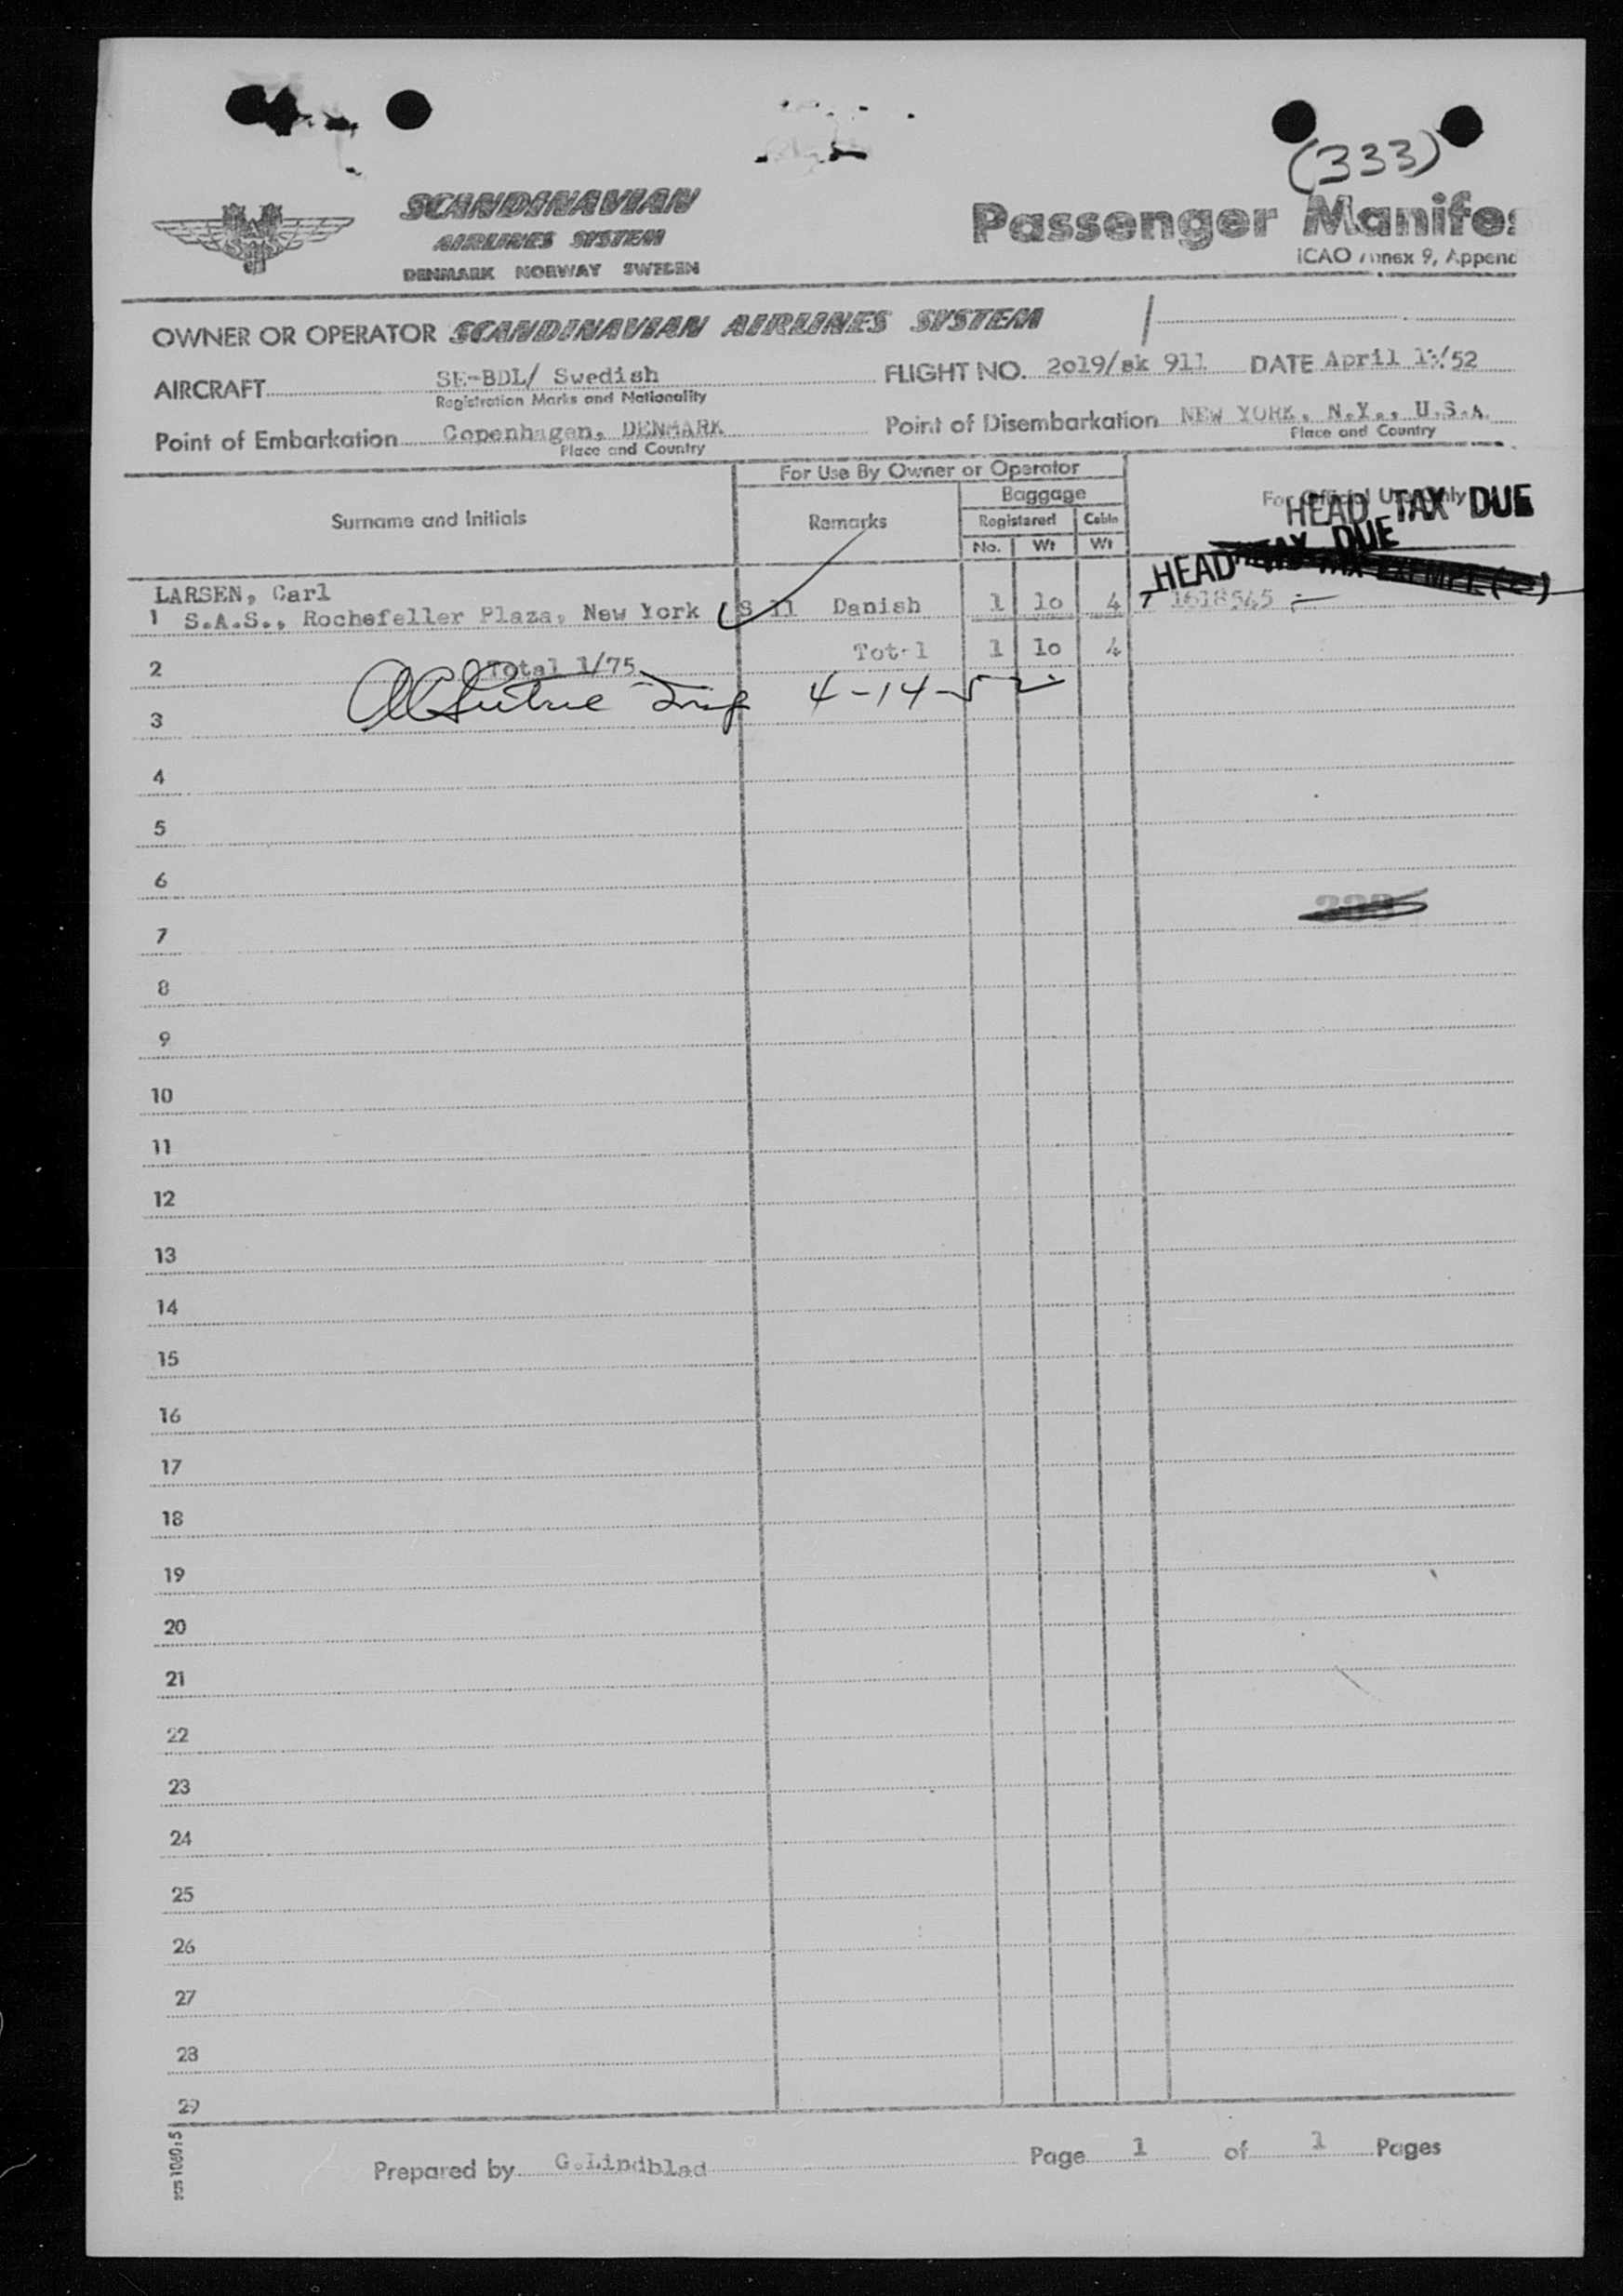 (333)
SCANDINAVIAN
AIRLINES SYSTEM
DENMARK NORWAY SWEDEN
Passenger Manifes
ICAO Annex 9, Append
OWNER OR OPERATOR SCANDINAVIAN AIRLINES SYSTEM
AIRCRAFT SE-BDL/ Swedish
Registration Marks and Nationality
FLIGHT NO. 2o19/sk 911 DATE April /52
Point of Embarkation Copenhagen, DENMARK
Place and Country
Point of Disembarkation NEW YORK, N.Y., U.S.A.
Place and Country
For Use By Owner or Operator
Surname and Initials
Remarks
Baggage
Registered Cabin
No. Wt Wt
For Official Use Only
HEAD TAX DUE
HEAD TAX DUE
LARSEN, Carl
1 S.A.S., Rochefeller Plaza, New York S 11 Danish 1 1o 4 T 1618545
2 Total 1/75 Total 1 1o 4
3 4-14-52
4
5
6
7
8
9
10
11
12
13
14
15
16
17
18
19
20
21
22
23
24
25
26
27
28
29
Prepared by G.Lindblad
Page 1 of 1 Pages